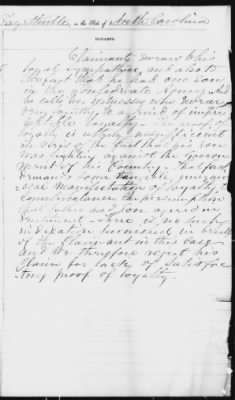 Fayetteville, in the State of North Carolina
REMARKS.
Claimant swears to his
loyal sympathies, and also to
the fact that he had one son
in the Confederate Army. And
he calls one witness who swears
loyalty is utterly insufficient
in view of the fact that his son
was fighting against the Govern
ment of his Country. This fact
demands some tangible, unequiv
ocal manifestation of loyalty, to
counterbalance the presumption
that father and son agreed in
sentiment. There is no such
indication furnished in behalf
of the claimant in this case
and we therefore reject his
claim for lack of satisfac
tory proof of loyalty.